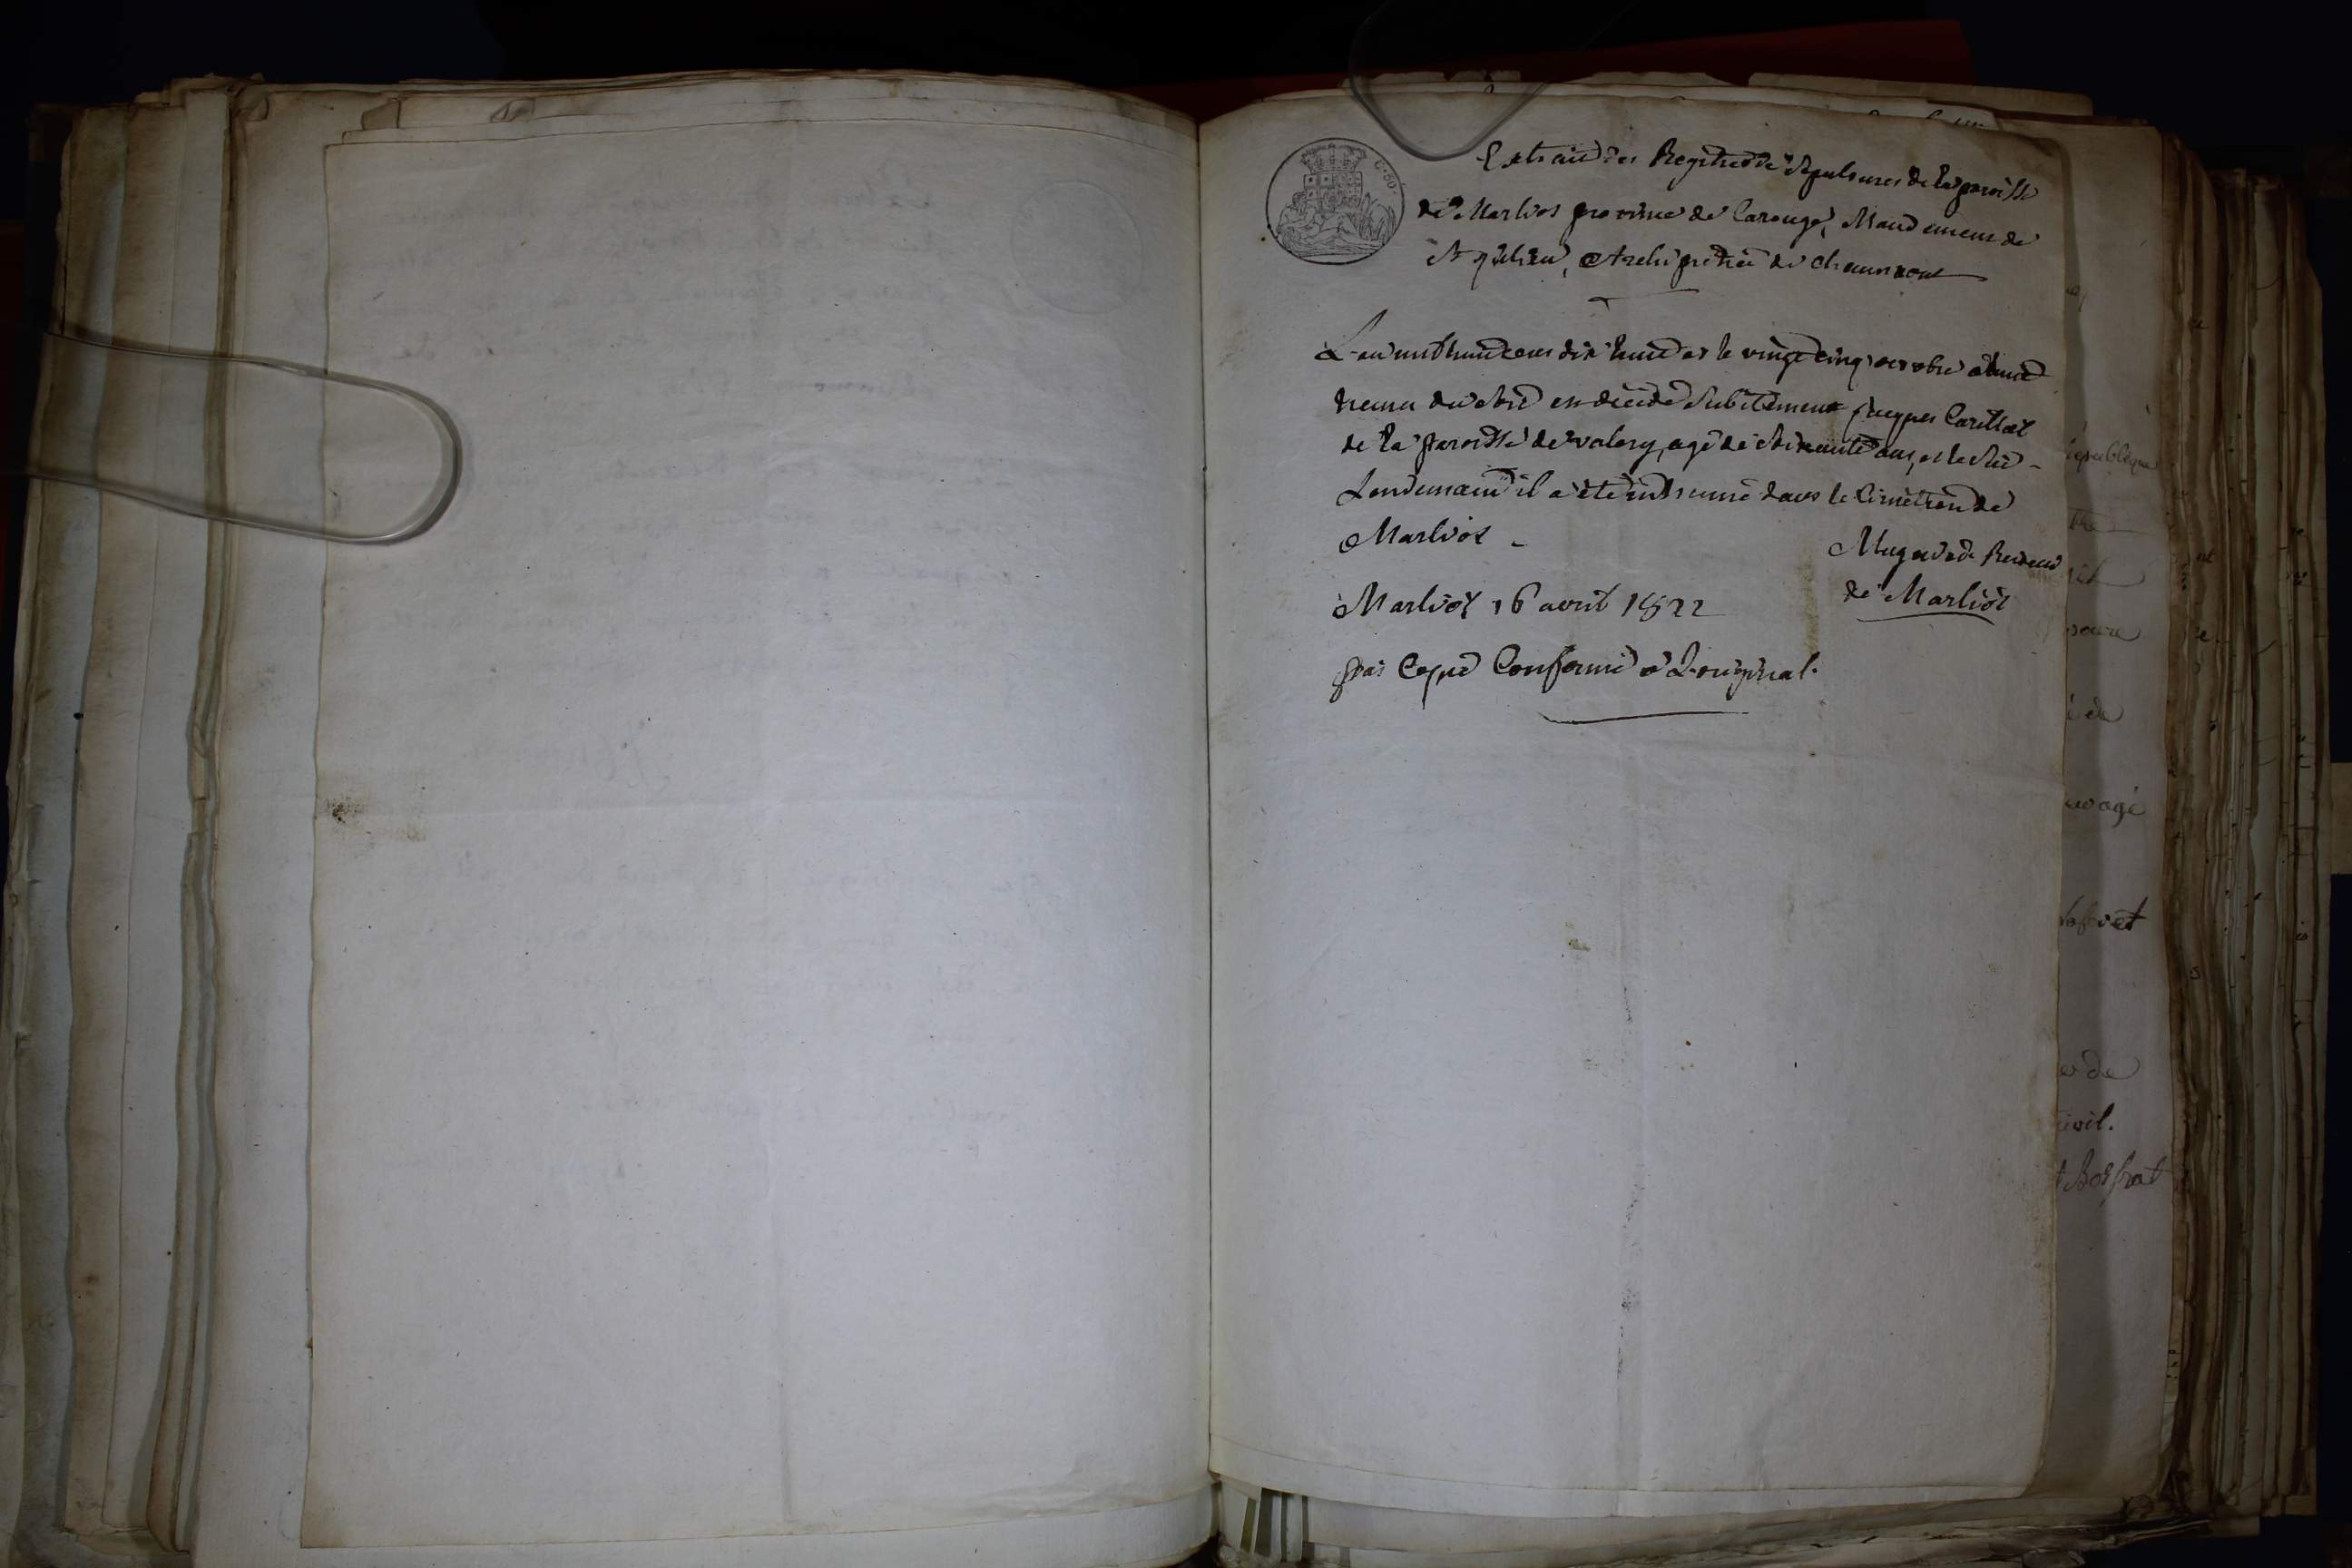 C. 50.
Extrait des Registres de Sepultures de la paroisse
de Marlioz province de Carouge, Mandement de
St Julien, Archiprêtré de chaumont
L-an mil huit cens dix huit et le vingt cinq octobre à huit
heures du soir est décédé subitement jacques Carillat
de la paroisse de valery, agé de soixante ans, et le sur-
Lendemain il a été inhumé dans le Cimetière de
Marlioz -
de Marlioz
Marlioz 16 avril 1822
par Copie Conforme à L-original.
republique
ré de
er de
civil.